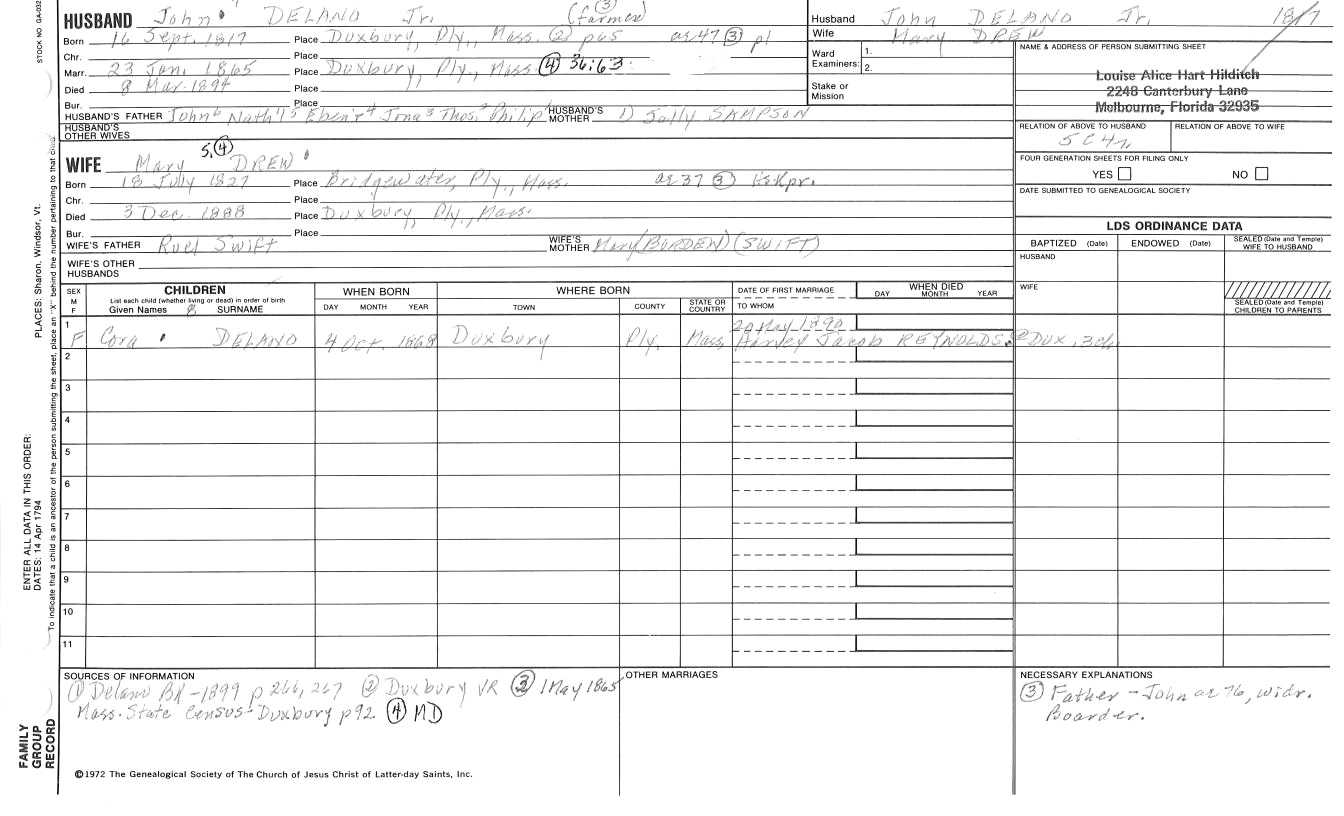 STOCK NO. GA-032
HUSBAND John DELANO Jr. (3) (farmer)
Born 16 Sept. 1817 Place Duxbury, Ply., Mass. (2) p65 ae 47 (3) pl
Chr. Place
Marr. 23 Jan. 1865 Place Duxbury, Ply., Mass. (4) 36:63
Died 8 Mar. 1894 Place
Bur. Place
HUSBAND'S FATHER John 6 Nath'l 5 Eben'r 4 Jona 3 Thos. 2 Philip 1 HUSBAND'S MOTHER 1) Sally SAMPSON
HUSBAND'S OTHER WIVES
5, (4)
WIFE Mary DREW
Born 18 July 1827 Place Bridgewater, Ply., Mass. ae 37 (3) Hskpr.
Chr. Place
Died 3 Dec. 1888 Place Duxbury, Ply., Mass.
Bur. Place
WIFE'S FATHER Ruel Swift WIFE'S MOTHER Mary (BURDEN) (SWIFT)
WIFE'S OTHER HUSBANDS
Husband John DELANO Jr. 1817
Wife Mary DREW
Ward Examiners: 1. 2.
Stake or Mission
NAME & ADDRESS OF PERSON SUBMITTING SHEET
Louise Alice Hart Hilditch
2248 Canterbury Lane
Melbourne, Florida 32935
RELATION OF ABOVE TO HUSBAND RELATION OF ABOVE TO WIFE
5C4r
FOUR GENERATION SHEETS FOR FILING ONLY
YES NO
DATE SUBMITTED TO GENEALOGICAL SOCIETY
LDS ORDINANCE DATA
BAPTIZED (Date) ENDOWED (Date) SEALED (Date and Temple) WIFE TO HUSBAND
HUSBAND
WIFE
SEALED (Date and Temple) CHILDREN TO PARENTS
SEX M F CHILDREN WHEN BORN WHERE BORN DATE OF FIRST MARRIAGE WHEN DIED
List each child (whether living or dead) in order of birth
Given Names SURNAME DAY MONTH YEAR TOWN COUNTY STATE OR COUNTRY TO WHOM DAY MONTH YEAR
1 20 May 1890
F Cora DELANO 4 Oct. 1868 Duxbury Ply. Mass. Harvey Jacob REYNOLDS. @ Dux; 3ch
2
3
4
5
6
7
8
9
10
11
SOURCES OF INFORMATION
(1) Delano BK - 1899 p 266, 267 (2) Duxbury VR (3) 1 May 1865
Mass. State Census - Duxbury p92 (4) MD
OTHER MARRIAGES
NECESSARY EXPLANATIONS
(3) Father - John ae 76, widr.
Boarder.
©1972 The Genealogical Society of The Church of Jesus Christ of Latter-day Saints, Inc.
FAMILY GROUP RECORD
ENTER ALL DATA IN THIS ORDER:
DATES: 14 Apr 1794
PLACES: Sharon, Windsor, Vt.
To indicate that a child is an ancestor of the person submitting the sheet, place an "X" behind the number pertaining to that child.